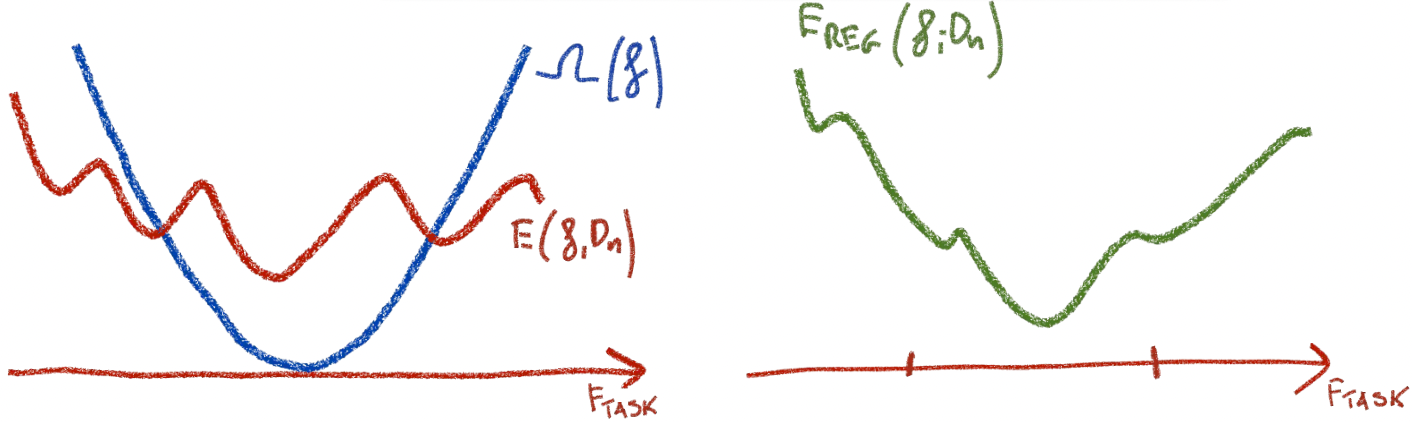 Ω(f)
E(f, Dn)
FTASK
EREG(f; Dn)
FTASK